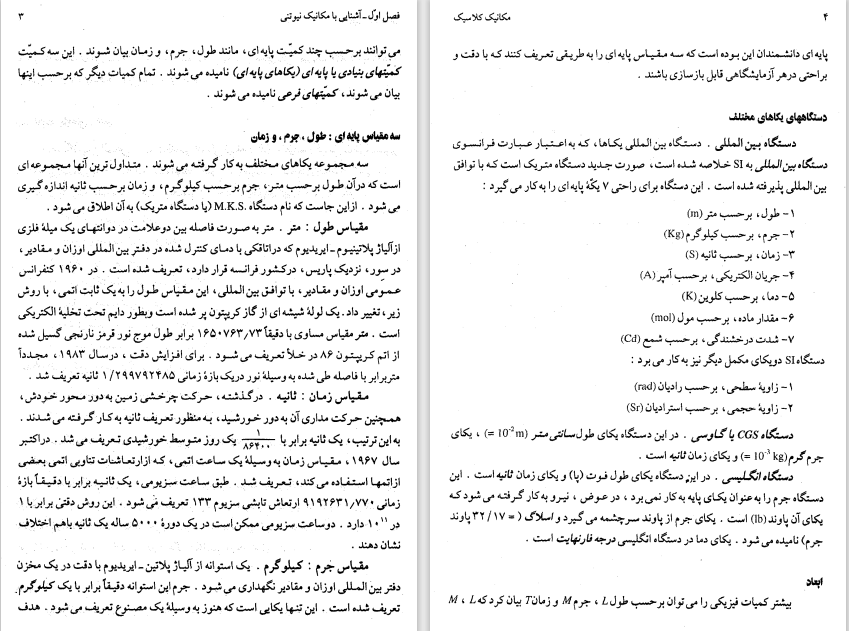 فصل اول ـ آشنایی با مکانیک نیوتنی ۳
می توانند برحسب چند کمیّت پایه ای، مانند طول، جرم، و زمان بیان شوند . این سه کمیّت
کمیّتهای بنیادی یا پایه ای (یکاهای پایه ای) نامیده می شوند . تمام کمیات دیگر که برحسب اینها
بیان می شوند، کمیّتهای فرعی نامیده می شوند .
سه مقیاس پایه ای : طول ، جرم ، و زمان
سه مجموعه یکاهای مختلف به کار گرفته می شوند . متداول ترین آنها مجموعه ای
است که درآن طول برحسب متر، جرم برحسب کیلوگرم، و زمان برحسب ثانیه اندازه گیری
می شود . ازاین جاست که نام دستگاه .M.K.S (یا دستگاه متریک) به آن اطلاق می شود .
مقیاس طول : متر . متر به صورت فاصله بین دوعلامت در دوانتهای یک میلهٔ فلزی
ازآلیاژ پلاتینیوم ـ ایریدیوم که دراتاقکی با دمای کنترل شده در دفتر بین المللی اوزان و مقادیر،
در سِور، نزدیک پاریس، درکشور فرانسه قرار دارد، تعریف شده است . در ۱۹۶۰ کنفرانس
عمومی اوزان و مقادیر، با توافق بین المللی، این مقیاس طول را به یک ثابت اتمی، با روش
زیر، تغییر داد. یک لولهٔ شیشه ای از گاز کریپتون پر شده است وبطور دایم تحت تخلیهٔ الکتریکی
است . متر مقیاس مساوی با دقیقاً ۱۶۵۰۷۶۳٫۷۳ برابر طول موج نور قرمز نارنجی گسیل شده
از اتم کریپتون ۸۶ در خلأ تعریف می شود . برای افزایش دقت ، درسال ۱۹۸۳ ، مجدداً
متربرابر با فاصله طی شده به وسیلهٔ نور دریک بازهٔ زمانی ۱/۲۹۹۷۹۲۴۸۵ ثانیه تعریف شد .
مقیاس زمان : ثانیه . درگذشته، حرکت چرخشی زمین به دور محور خودش،
همچنین حرکت مداری آن به دور خورشید، به منظور تعریف ثانیه به کار گرفته می شدند .
به این ترتیب، یک ثانیه برابر با ۱/۸۶۴۰۰ یک روز متوسط خورشیدی تعریف می شد . دراکتبر
سال ۱۹۶۷ ، مقیاس زمان به وسیلهٔ یک ساعت اتمی، که ازارتعاشات تناوبی اتمی بعضی
ازاتمها استفاده می کند، تعریف شد . طبق ساعت سزیومی، یک ثانیه برابر با دقیقاً بازهٔ
زمانی ۹۱۹۲۶۳۱٫۷۷۰ ارتعاش تابشی سزیوم ۱۳۳ تعریف می شود . این روش دقتی برابر با ۱
در ۱۰۱۱ دارد . دوساعت سزیومی ممکن است در یک دورهٔ ۵۰۰۰ ساله یک ثانیه باهم اختلاف
نشان دهند .
مقیاس جرم : کیلوگرم . یک استوانه از آلیاژ پلاتین ـ ایریدیوم با دقت در یک مخزن
دفتر بین المللی اوزان و مقادیر نگهداری می شود . جرم این استوانه دقیقاً برابر با یک کیلوگرم
تعریف شده است . این تنها یکایی است که هنوز به وسیلهٔ یک مصنوع تعریف می شود . هدف
۴ مکانیک کلاسیک
پایه ای دانشمندان این بوده است که سه مقیاس پایه ای را به طریقی تعریف کنند که با دقت و
براحتی درهر آزمایشگاهی قابل بازسازی باشند .
دستگاههای یکاهای مختلف
دستگاه بین المللی . دستگاه بین المللی یکاها، که به اعتبار عبارت فرانسوی
دستگاه بین المللی به SI خلاصه شده است، صورت جدید دستگاه متریک است که با توافق
بین المللی پذیرفته شده است . این دستگاه برای راحتی ۷ یکّهٔ پایه ای را به کار می گیرد :
۱- طول، برحسب متر (m)
۲- جرم، برحسب کیلوگرم (Kg)
۳- زمان، برحسب ثانیه (S)
۴- جریان الکتریکی، برحسب آمپر (A)
۵- دما، برحسب کلوین (K)
۶- مقدار ماده، برحسب مول (mol)
۷- شدت درخشندگی، برحسب شمع (Cd)
دستگاه SI دویکای مکمل دیگر نیز به کار می برد :
۱- زاویهٔ سطحی، برحسب رادیان (rad)
۲- زاویهٔ حجمی، برحسب استرادیان (Sr)
دستگاه CGS یا گاوسی . در این دستگاه یکای طول سانتی متر (= 10⁻² m) ، یکای
جرم گرم (= 10⁻³ kg) و یکای زمان ثانیه است .
دستگاه انگلیسی . در این دستگاه یکای طول فوت (پا) و یکای زمان ثانیه است . این
دستگاه جرم را به عنوان یکای پایه به کار نمی برد ، در عوض ، نیرو به کار گرفته می شود که
یکای آن پاوند (lb) است . یکای جرم از پاوند سرچشمه می گیرد و اسلاگ ( = ۳۲/۱۷ پاوند
جرم) نامیده می شود . یکای دما در دستگاه انگلیسی درجه فارنهایت است .
ابعاد
بیشتر کمیات فیزیکی را می توان برحسب طول L ، جرم M و زمان T بیان کرد که L ، M